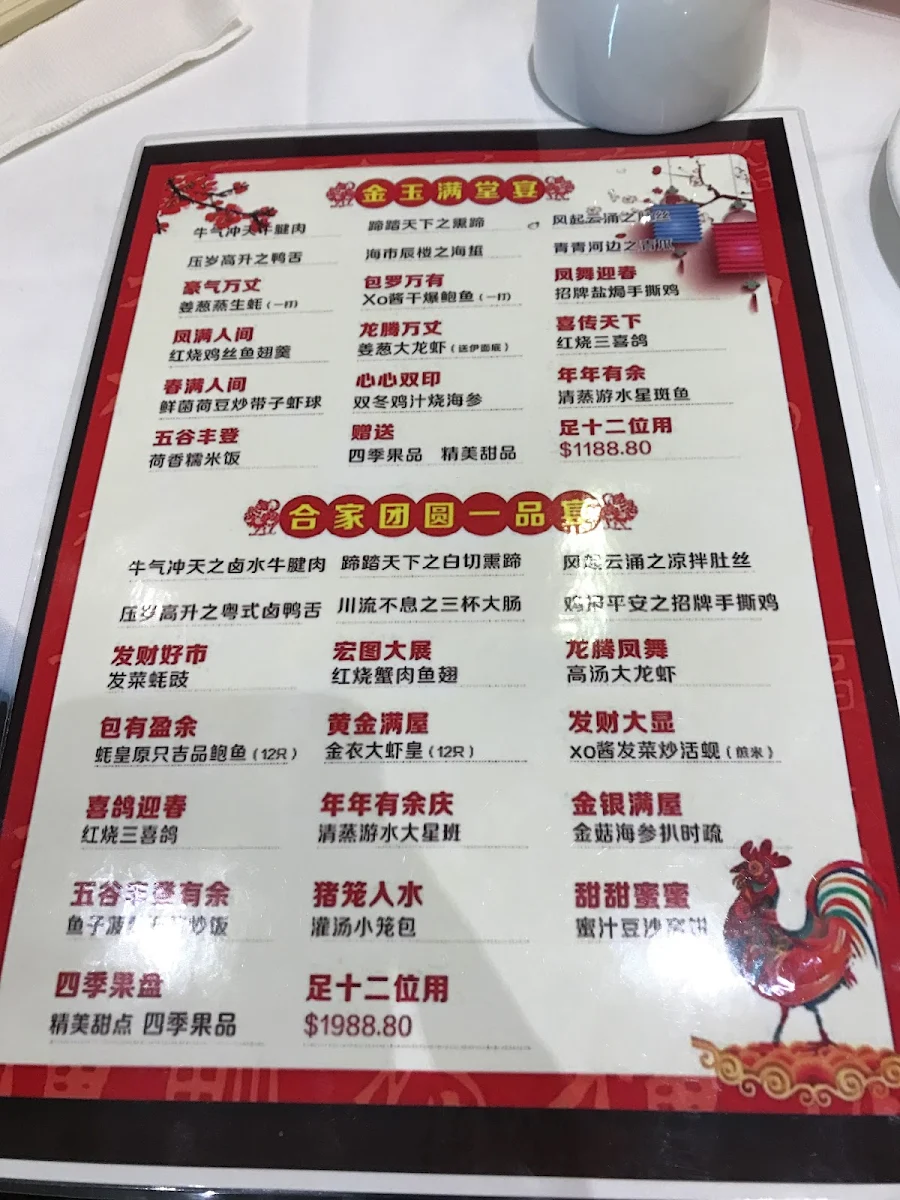 金玉满堂宴
牛气冲天牛腱肉 蹄踏天下之熏蹄 风起云涌之肚丝
压岁高升之鸭舌 海市辰楼之海蜇 青青河边之青瓜
豪气万丈 包罗万有 凤舞迎春
姜葱蒸生蚝(一打) Xo酱干爆鲍鱼(一打) 招牌盐焗手撕鸡
凤满人间 龙腾万丈 喜传天下
红烧鸡丝鱼翅羹 姜葱大龙虾(送伊面底) 红烧三喜鸽
春满人间 心心双印 年年有余
鲜菌荷豆炒带子虾球 双冬鸡汁烧海参 清蒸游水星斑鱼
五谷丰登 赠送 足十二位用
荷香糯米饭 四季果品 精美甜品 $1188.80
合家团圆一品宴
牛气冲天之卤水牛腱肉 蹄踏天下之白切熏蹄 风起云涌之凉拌肚丝
压岁高升之粤式卤鸭舌 川流不息之三杯大肠 鸡报平安之招牌手撕鸡
发财好市 宏图大展 龙腾凤舞
发菜蚝豉 红烧蟹肉鱼翅 高汤大龙虾
包有盈余 黄金满屋 发财大显
蚝皇原只吉品鲍鱼(12R) 金衣大虾皇(12R) XO酱发菜炒活蚬(煎米)
喜鸽迎春 年年有余庆 金银满屋
红烧三喜鸽 清蒸游水大星班 金菇海参扒时疏
五谷丰登有余 猪笼入水 甜甜蜜蜜
鱼子菠 炒饭 灌汤小笼包 蜜汁豆沙窝饼
四季果盘 足十二位用
精美甜点 四季果品 $1988.80